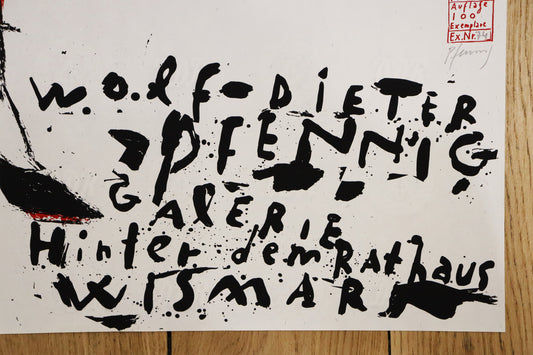 Auflage
100
Exemplare
Ex.Nr. 74
Pfennig
WOLF-DIETER
PFENNIG
GALERIE
Hinter dem Rathaus
WISMAR